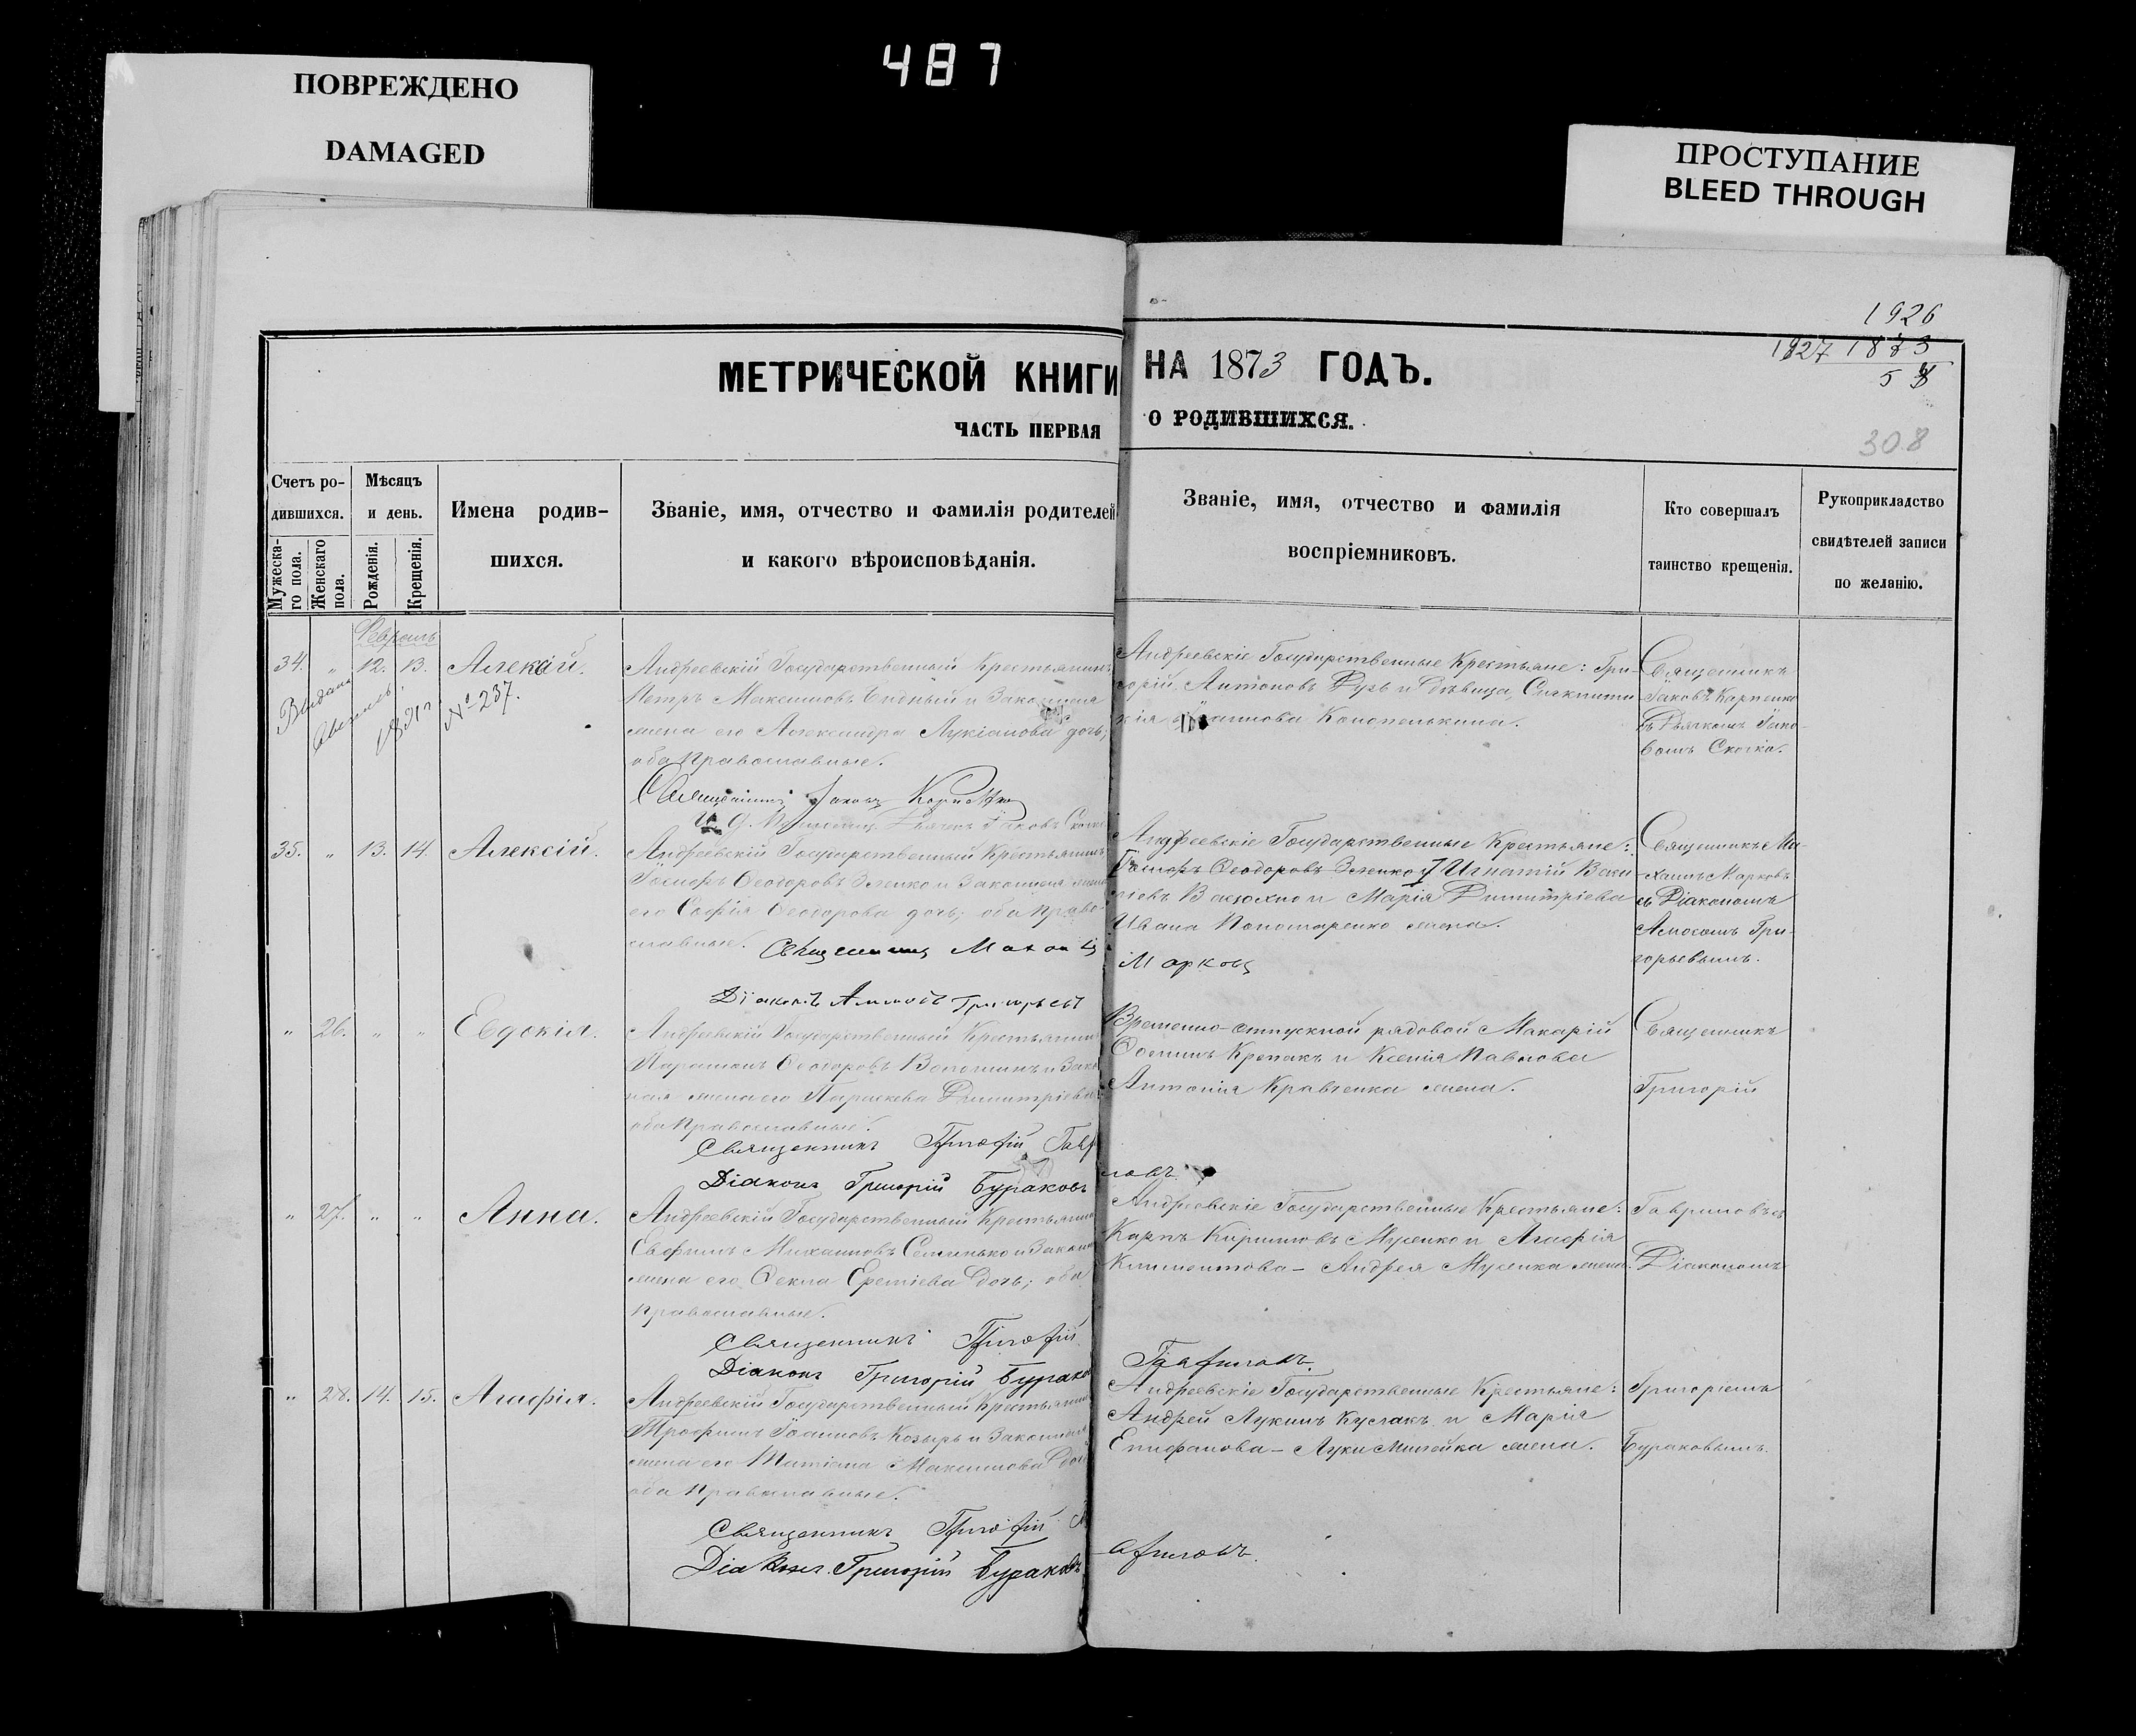 487
ПОВРЕЖДЕНО
DAMAGED
ПРОСТУПАНИЕ
BLEED THROUGH
1926
1927 1873
5
308
МЕТРИЧЕСКОЙ КНИГИ НА 1873 ГОДЪ.
ЧАСТЬ ПЕРВАЯ О РОДИВШИХСЯ.
Счетъ ро-
дившихся.
Мужеска-
го пола.
Женскаго
пола.
Мѣсяцъ
и день.
Рожденія.
Крещенія.
Имена родив-
шихся.
Званіе, имя, отчество и фамилія родителей
и какого вѣроисповѣданія.
Званіе, имя, отчество и фамилія
воспріемниковъ.
Кто совершалъ
таинство крещенія.
Рукоприкладство
свидѣтелей записи
по желанію.
Февраль
34. " 12. 13. Алексій.
№ 237.
Андреевскій Государственный Крестьянинъ
Петръ Максимовъ Бидный и Законная
жена его Александра Лукіанова дочь;
оба Православные.
Священникъ Іаковъ Карпенко
Андреевскіе Государственные Крестьяне: Гри-
горій Антоновъ Рузь и Дѣвица
Іоаннова Конопелькина.
Священникъ
Іаковъ Карпенко
съ Дьячкомъ Іако-
вомъ
35. " 13. 14. Алексій.
Андреевскій Государственный Крестьянинъ
Іосифъ Ѳеодоровъ Зленко и Законная жена
его Софія Ѳеодорова дочь; оба Право-
славные. Священникъ
Марковъ
Діаконъ Амосъ Григорьевъ
Андреевскіе Государственные Крестьяне:
Іосифъ Ѳеодоровъ Зленко Игнатій Васи-
ліевъ и Марія Димитріева
Ивана Пономаренко жена.
Священникъ Ми-
хаилъ Марковъ
съ Діакономъ
Амосомъ Гри-
горьевымъ.
" 26. " " Евдокія.
Андреевскій Государственный Крестьянинъ
Парамонъ Ѳеодоровъ Волошинъ и Закон
ная жена его Параскева Димитріева
оба Православные.
Священникъ Григорій Гавриловъ
Діаконъ Григорій Бураковъ
Временно-отпускной рядовой Макарій
Осиповъ Крепакъ и Ксенія Павлова
Антонія Кравченка жена.
Священникъ
Григорій
" 27. " " Анна.
Андреевскій Государственный Крестьянинъ
Евфимъ Михаиловъ и Законная
жена его Ѳекла Еремѣева Дочь; оба
Православные.
Священникъ Григорій Гавриловъ.
Діаконъ Григорій Бураковъ
Андреевскіе Государственные Крестьяне:
Карпъ Кирилловъ Мусенко и Агафія
Климентова - Андрея Мусенка жена.
Гавриловъ съ
Діакономъ
" 28. 14. 15. Агафія.
Андреевскій Государственный Крестьянинъ
Трофимъ Іоанновъ Козырь и Законная
жена его Татіана Максимова Дочь
оба Православные.
Священникъ Григорій Гавриловъ.
Діаконъ Григорій Бураковъ
Андреевскіе Государственные Крестьяне:
Андрей Лукинъ Куслакъ и Марія
Епифанова - Луки жена.
Григоріемъ
Бураковымъ.